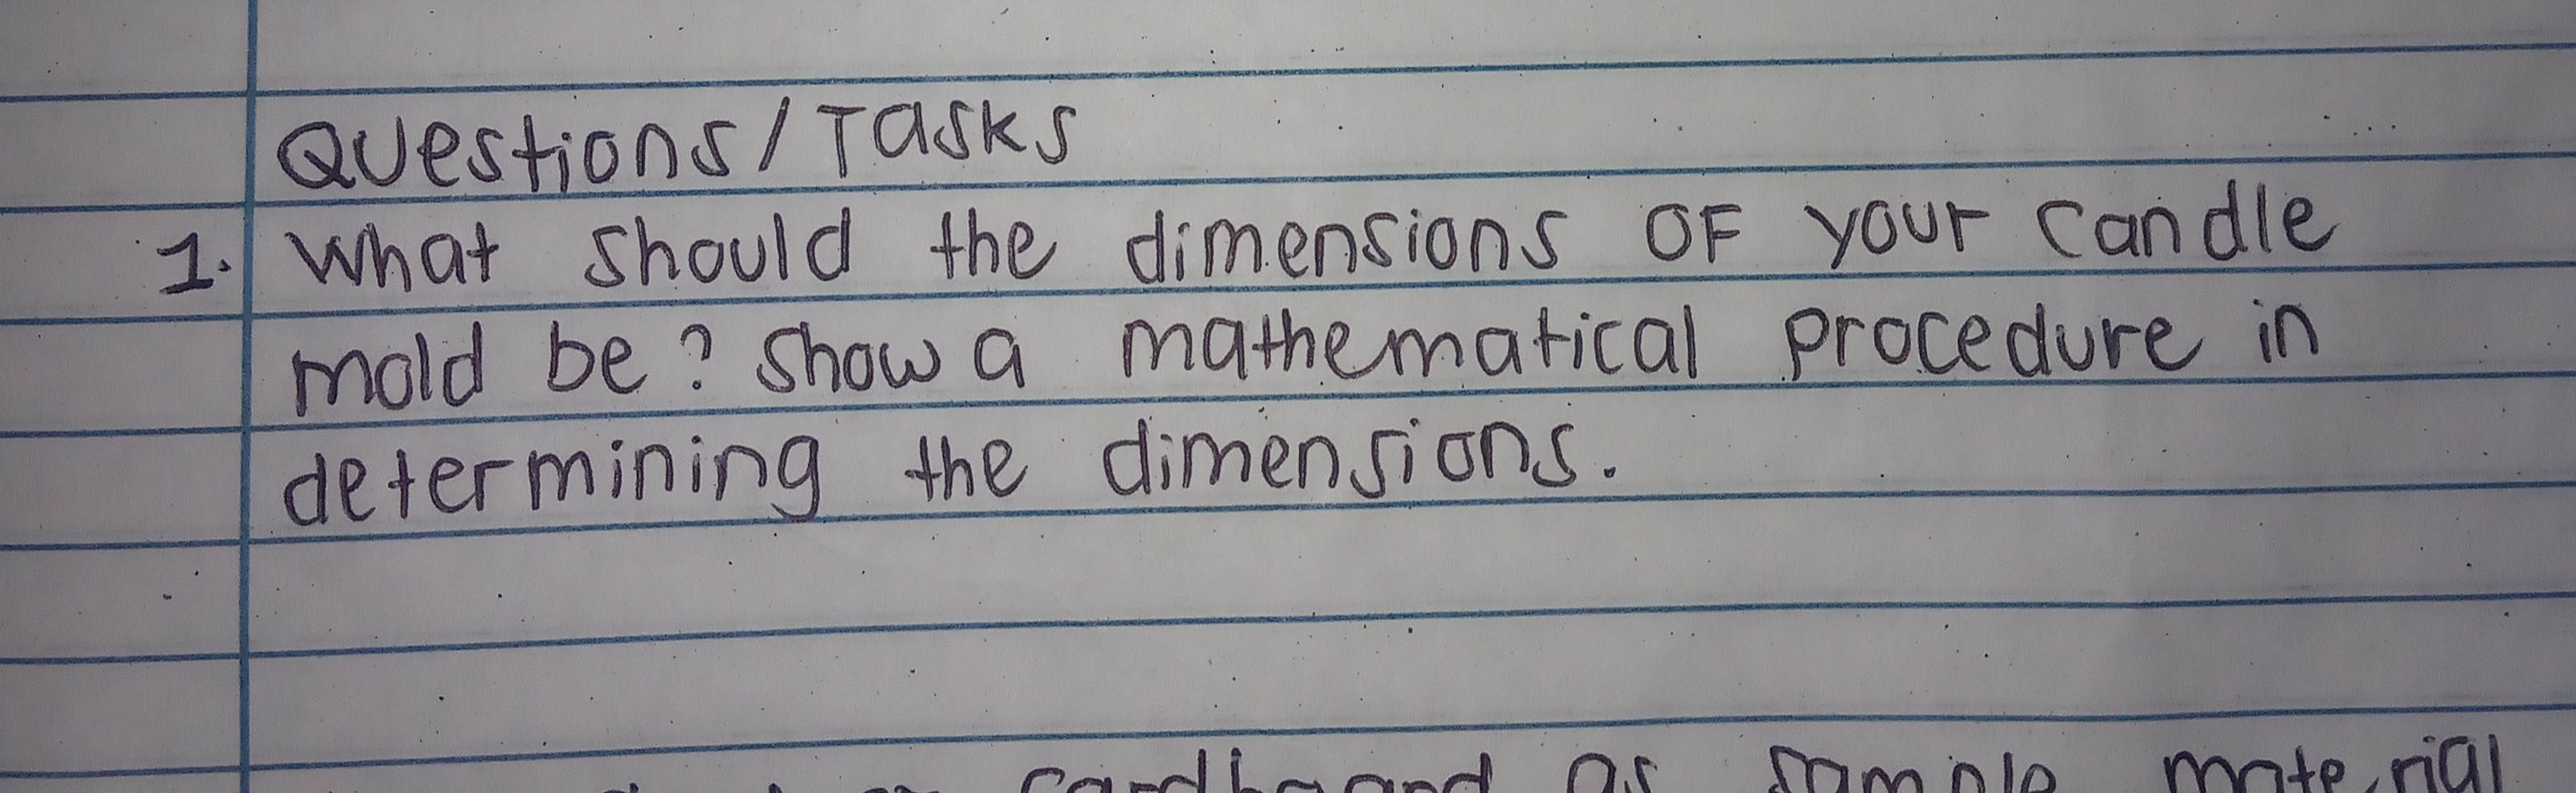 Questions/Tasks
1. What should the dimensions OF your candle
mold be? Show a mathematical procedure in
determining the dimensions.
cardboard as sample material